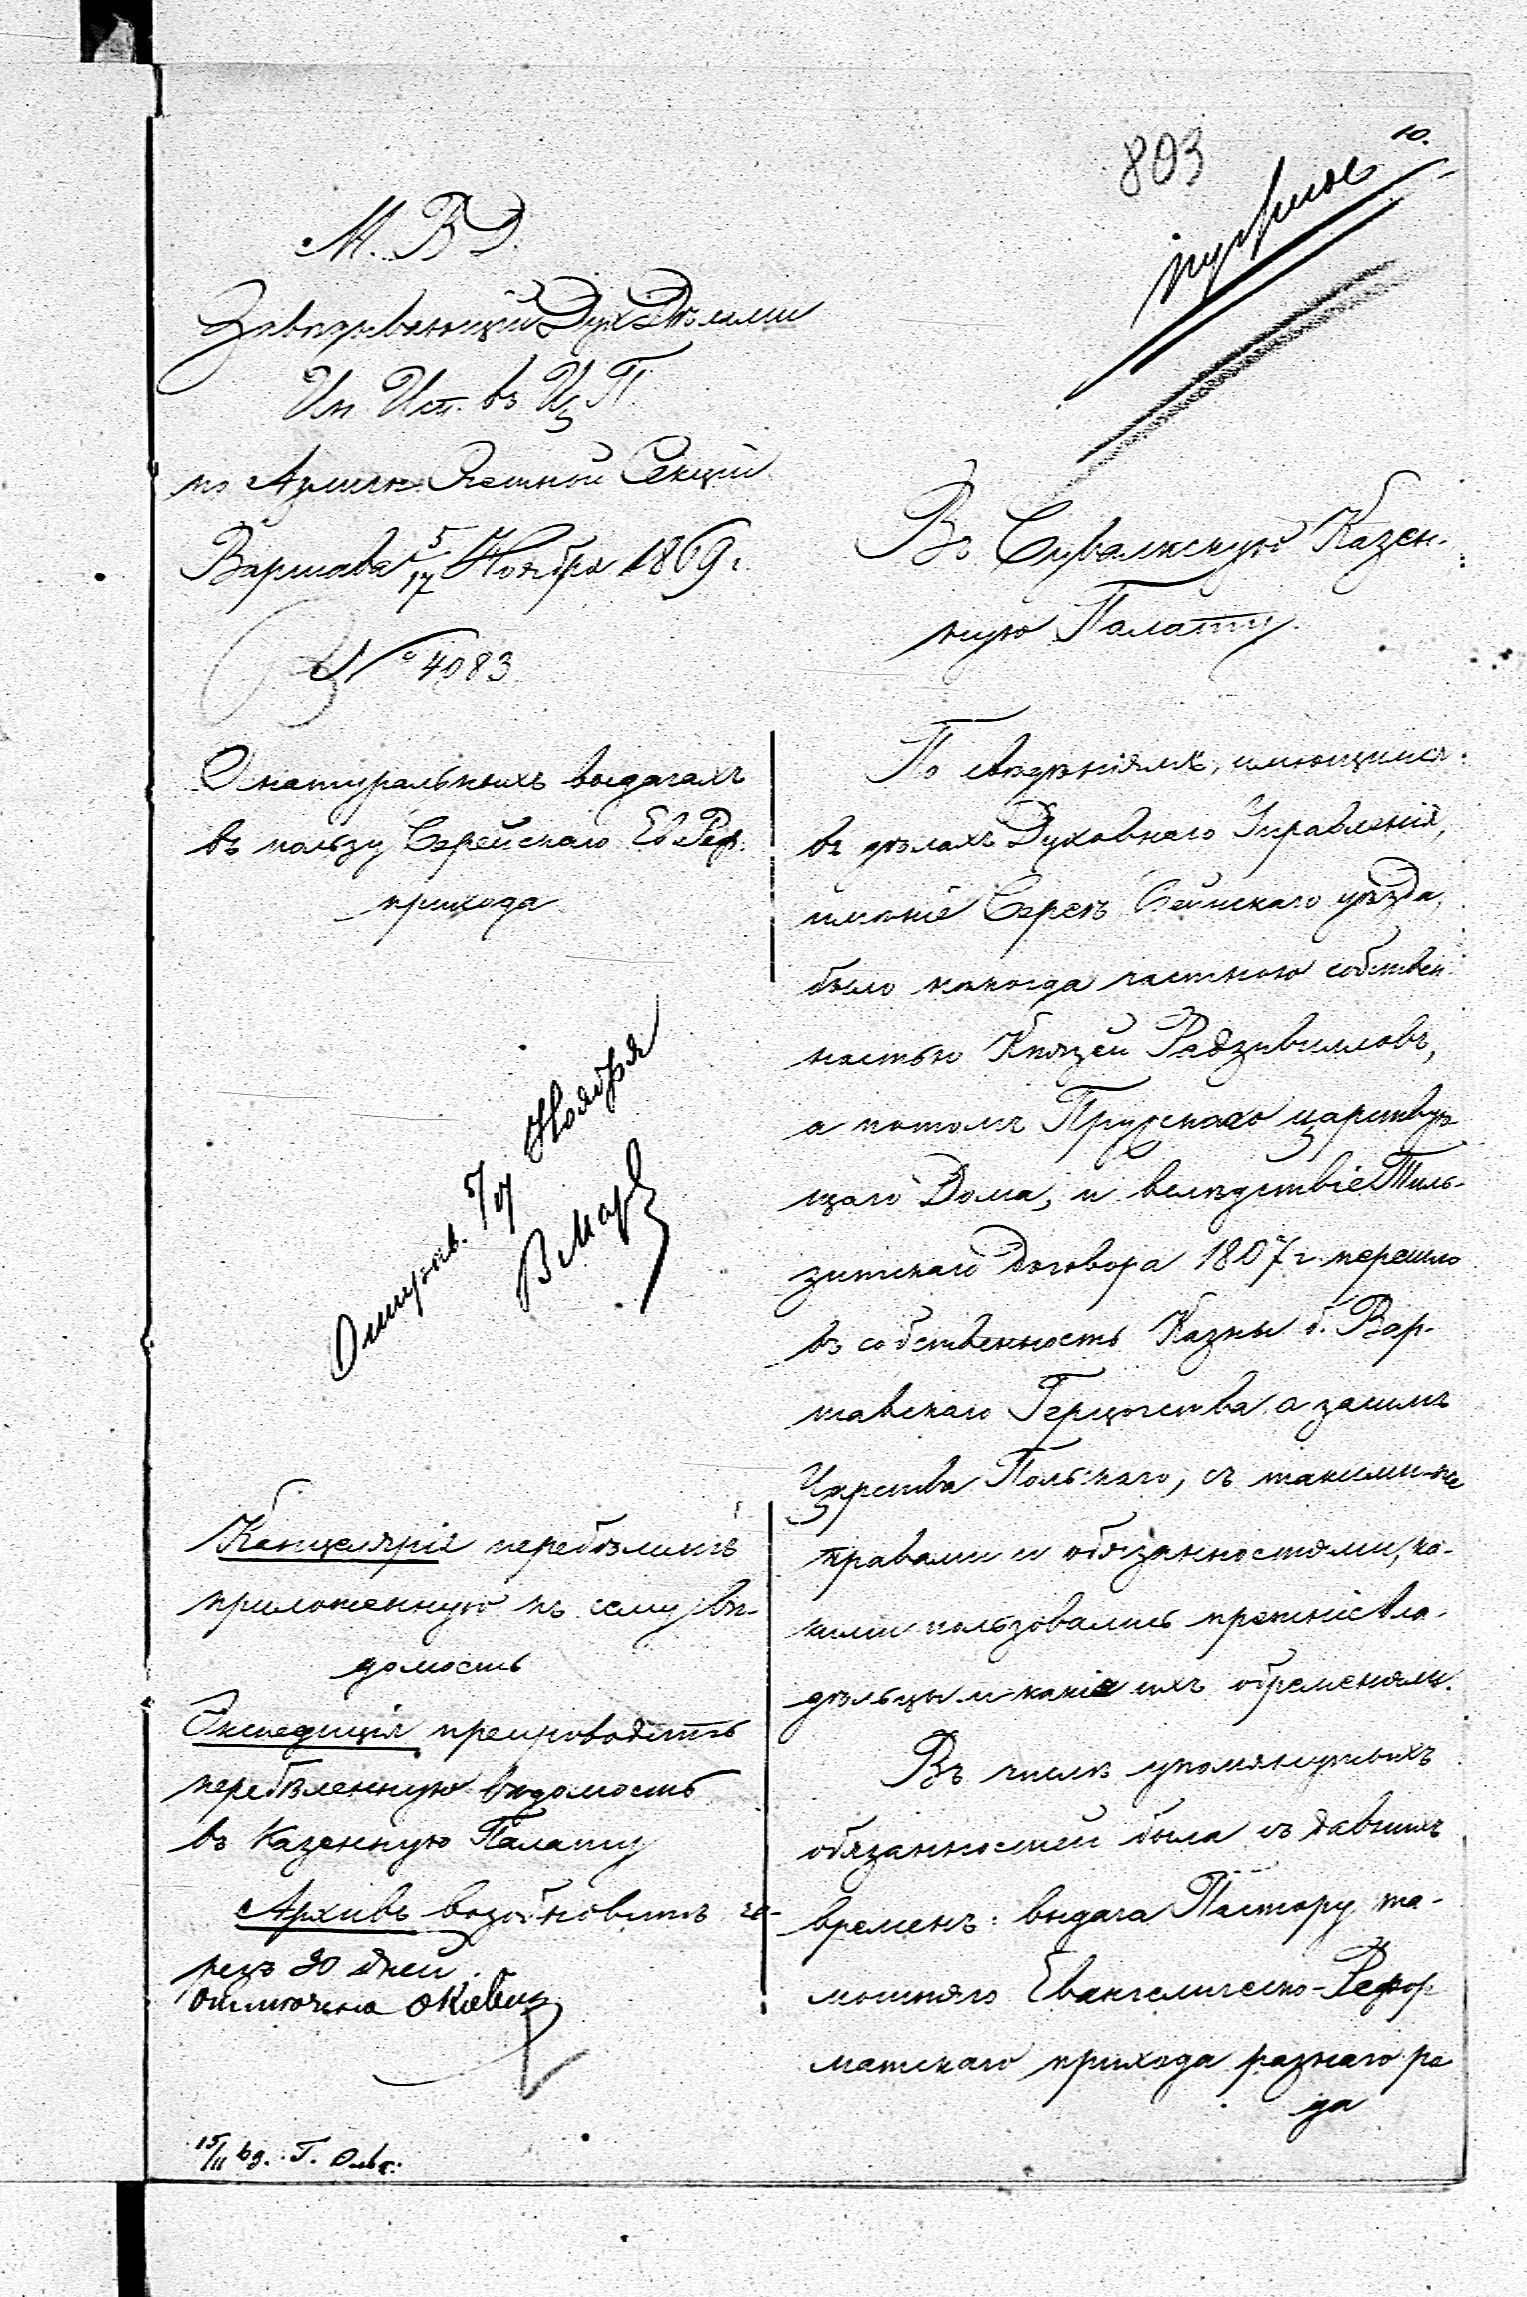 803
10.
М. В. Д.
Завѣдывающій Дух Дѣлами
Ин Исп. въ Ц П.
по Админ. Счетной Секціи
Варшава 5/17 Ноября 1869 г.
№ 4083
Въ Сувалкскую Казен-
ную Палату.
О натуральныхъ выдачахъ
въ пользу Серейскаго Ев Реф.
прихода
Отправ. 5/17 Ноября
Канцелярія перебѣлитъ
приложенную къ сему вѣ-
домость
Экспедиція препроводитъ
перебѣленную вѣдомость
въ Казенную Палату
Архивъ возобновитъ че-
резъ 30 дней.
15/11 69.
По свѣдѣніямъ, имѣющимся
въ дѣлахъ Духовнаго Управленія,
имѣніе Сереѣ Сейнскаго уѣзда,
было нѣкогда частною собствен-
ностью Князей Радзивилловъ,
а потомъ Прусскаго царствую-
щаго Дома, и вслѣдствіе Тиль-
зитскаго договора 1807 г. перешло
въ собственность Казны б. Вар-
шавскаго Герцогства а засимъ
Царства Польскаго, съ такими-же
правами и обязанностями, ка-
кими пользовались прежніе вла-
дѣльцы и какія ихъ обременяли.
Въ числѣ упомянутыхъ
обязанностей была съ давнихъ
временъ: выдача Пастору та-
мошняго Евангелическо-Рефор
матскаго прихода разнаго ро
да